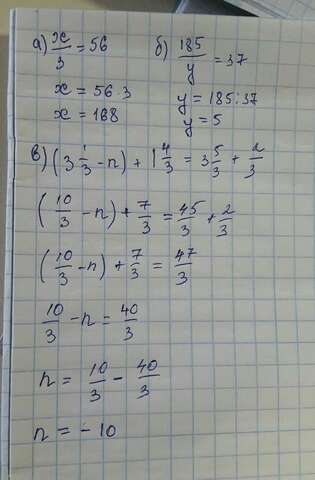 а) x/3 = 56 б) 185/y = 37
x = 56·3 y = 185:37
x = 168 y = 5
в) (3 1/3 - n) + 1 4/3 = 3 5/3 + 2/3
(10/3 - n) + 7/3 = 45/3 + 2/3
(10/3 - n) + 7/3 = 47/3
10/3 - n = 40/3
n = 10/3 - 40/3
n = - 10